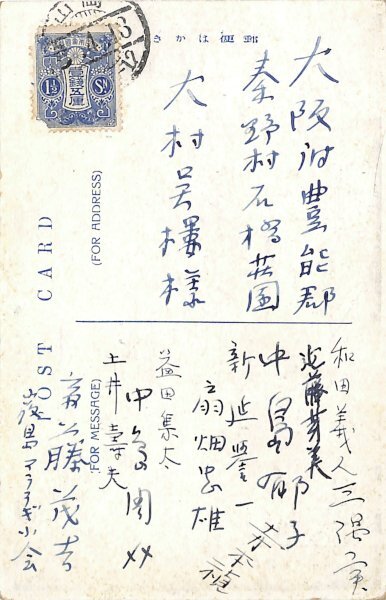 郵便はかき
大阪府豊能郡
秦野村石橋荘園
大村呉樓様
POST CARD
(FOR ADDRESS)
(FOR MESSAGE)
和田義人
三隅寅
近藤芳美
中島郁子
新延誉一
赤木
扇畑忠雄
益田集太
中島周介
土井壽夫
斎藤茂吉
廣島アララギ小会
1½ Sn.